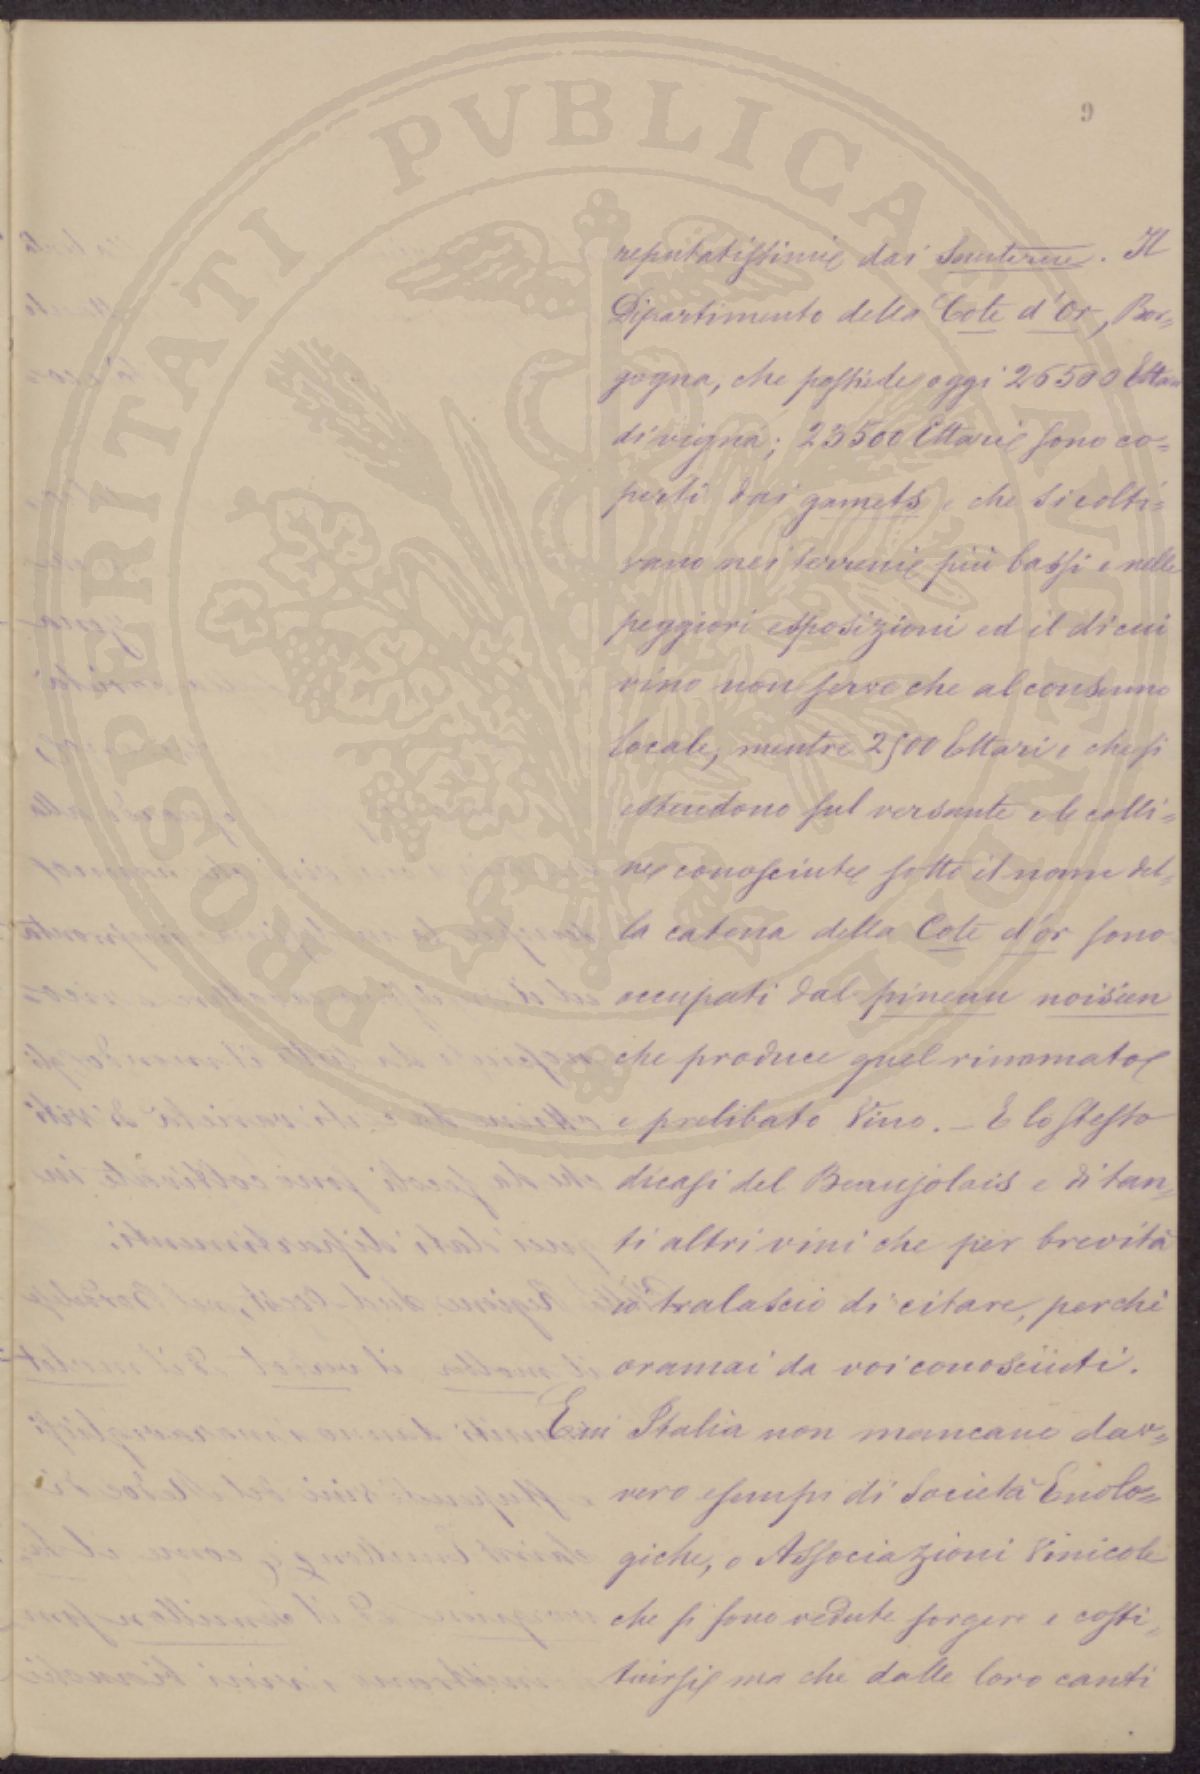 PROSPERITATI PVBLICAE AVGENDAE
9
reputatissimi dai Sauterne. Il
Dipartimento della Cote d'Or, Bor=
gogna, che possiede oggi 26500 Ettari
di vigna; 23500 Ettari sono co=
perti dai gamets e che si colti=
vano nei terreni più bassi e nelle
peggiori esposizioni ed il di cui
vino non serve che al consumo
locale, mentre 2500 Ettari e che si
estendono sul versante e le colli=
ne conosciute sotto il nome del=
la catena della Cote d'or sono
occupati dal pineau noisien
che produce quel rinomato
e prelibato Vino. – E lo stesso
dicasi del Beaujolais e di tan=
ti altri vini che per brevità
io tralascio di citare, perchè
oramai da voi conosciuti.
E in Italia non mancano dav=
vero esempi di Società Enolo=
giche, o Associazioni Vinicole
che si sono vedute sorgere e costi=
tuirsi ma che dalle loro canti